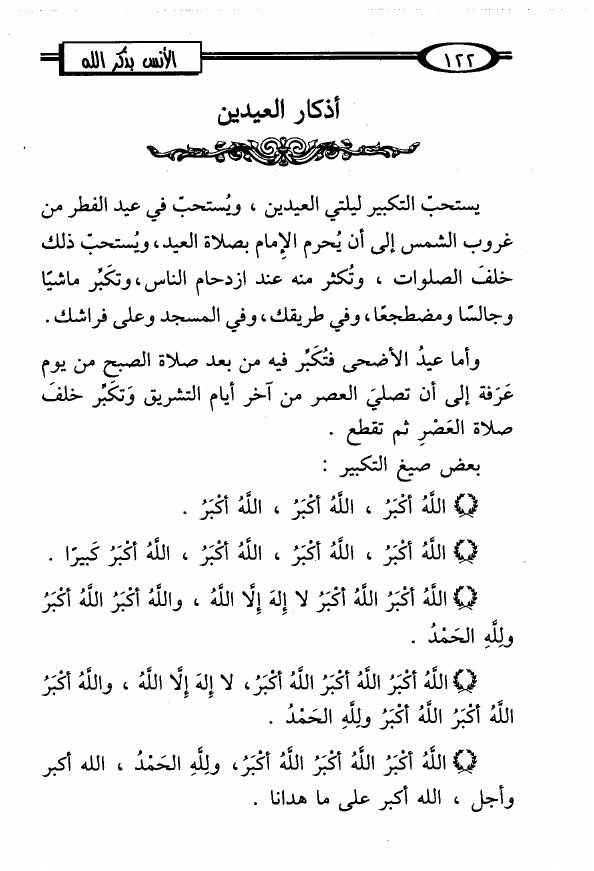 الأنس بذكر الله
١٢٢
أذكار العيدين
يستحبّ التكبير ليلتي العيدين ، ويُستحبّ في عيد الفطر من
غروب الشمس إلى أن يُحرم الإمام بصلاة العيد، ويُستحبّ ذلك
خلفَ الصلوات ، وتُكثر منه عند ازدحام الناس، وتكَبِّر ماشيًا
وجالسًا ومضطجعًا، وفي طريقك، وفي المسجد وعلى فراشك.
وأما عيدُ الأضحى فتُكَبِّر فيه من بعد صلاة الصبح من يوم
عَرَفة إلى أن تصليَ العصر من آخر أيام التشريق وَتكَبِّر خلفَ
صلاة العَصْرِ ثم تقطع .
بعض صيغ التكبير :
اللَّهُ أكْبَرُ ، اللَّهُ أكْبَرُ ، اللَّهُ أكْبَرُ .
اللَّهُ أكْبَرُ ، اللَّهُ أكْبَرُ ، اللَّهُ أكْبَرُ ، اللَّهُ أكْبَرُ كَبيرًا .
اللَّهُ أكْبَرُ اللَّهُ أكْبَرُ لا إلهَ إلَّا اللَّهُ ، واللَّهُ أكْبَرُ اللَّهُ أكْبَرُ
ولِلَّهِ الحَمْدُ .
اللَّهُ أكْبَرُ اللَّهُ أكْبَرُ اللَّهُ أكْبَرُ، لا إلهَ إلَّا اللَّهُ ، واللَّهُ أكْبَرُ
اللَّهُ أكْبَرُ اللَّهُ أكْبَرُ ولِلَّهِ الحَمْدُ .
اللَّهُ أكْبَرُ اللَّهُ أكْبَرُ اللَّهُ أكْبَرُ، ولِلَّهِ الحَمْدُ ، الله أكبر
وأجل ، الله أكبر على ما هدانا .